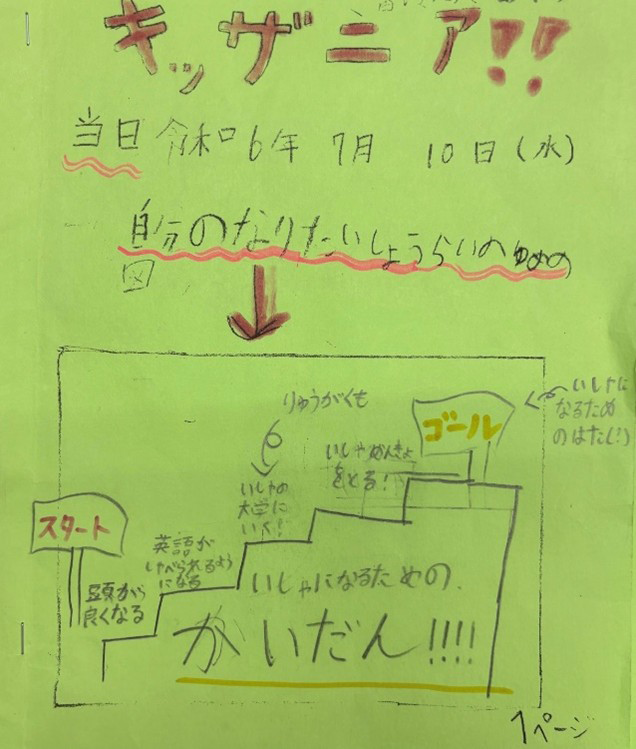 キッザニア!!
当日 令和6年 7月 10日(水)
自分のなりたいしょうらいのゆめの
図
りゅうがくも
ゴール
いしゃに
なるため
のはた(!)
いしゃめんきょ
をとる!
いしゃの
大学に
いく!
スタート
英語が
しゃべられるよう
になる
頭が
良くなる
いしゃになるための
かいだん!!!!
1ページ